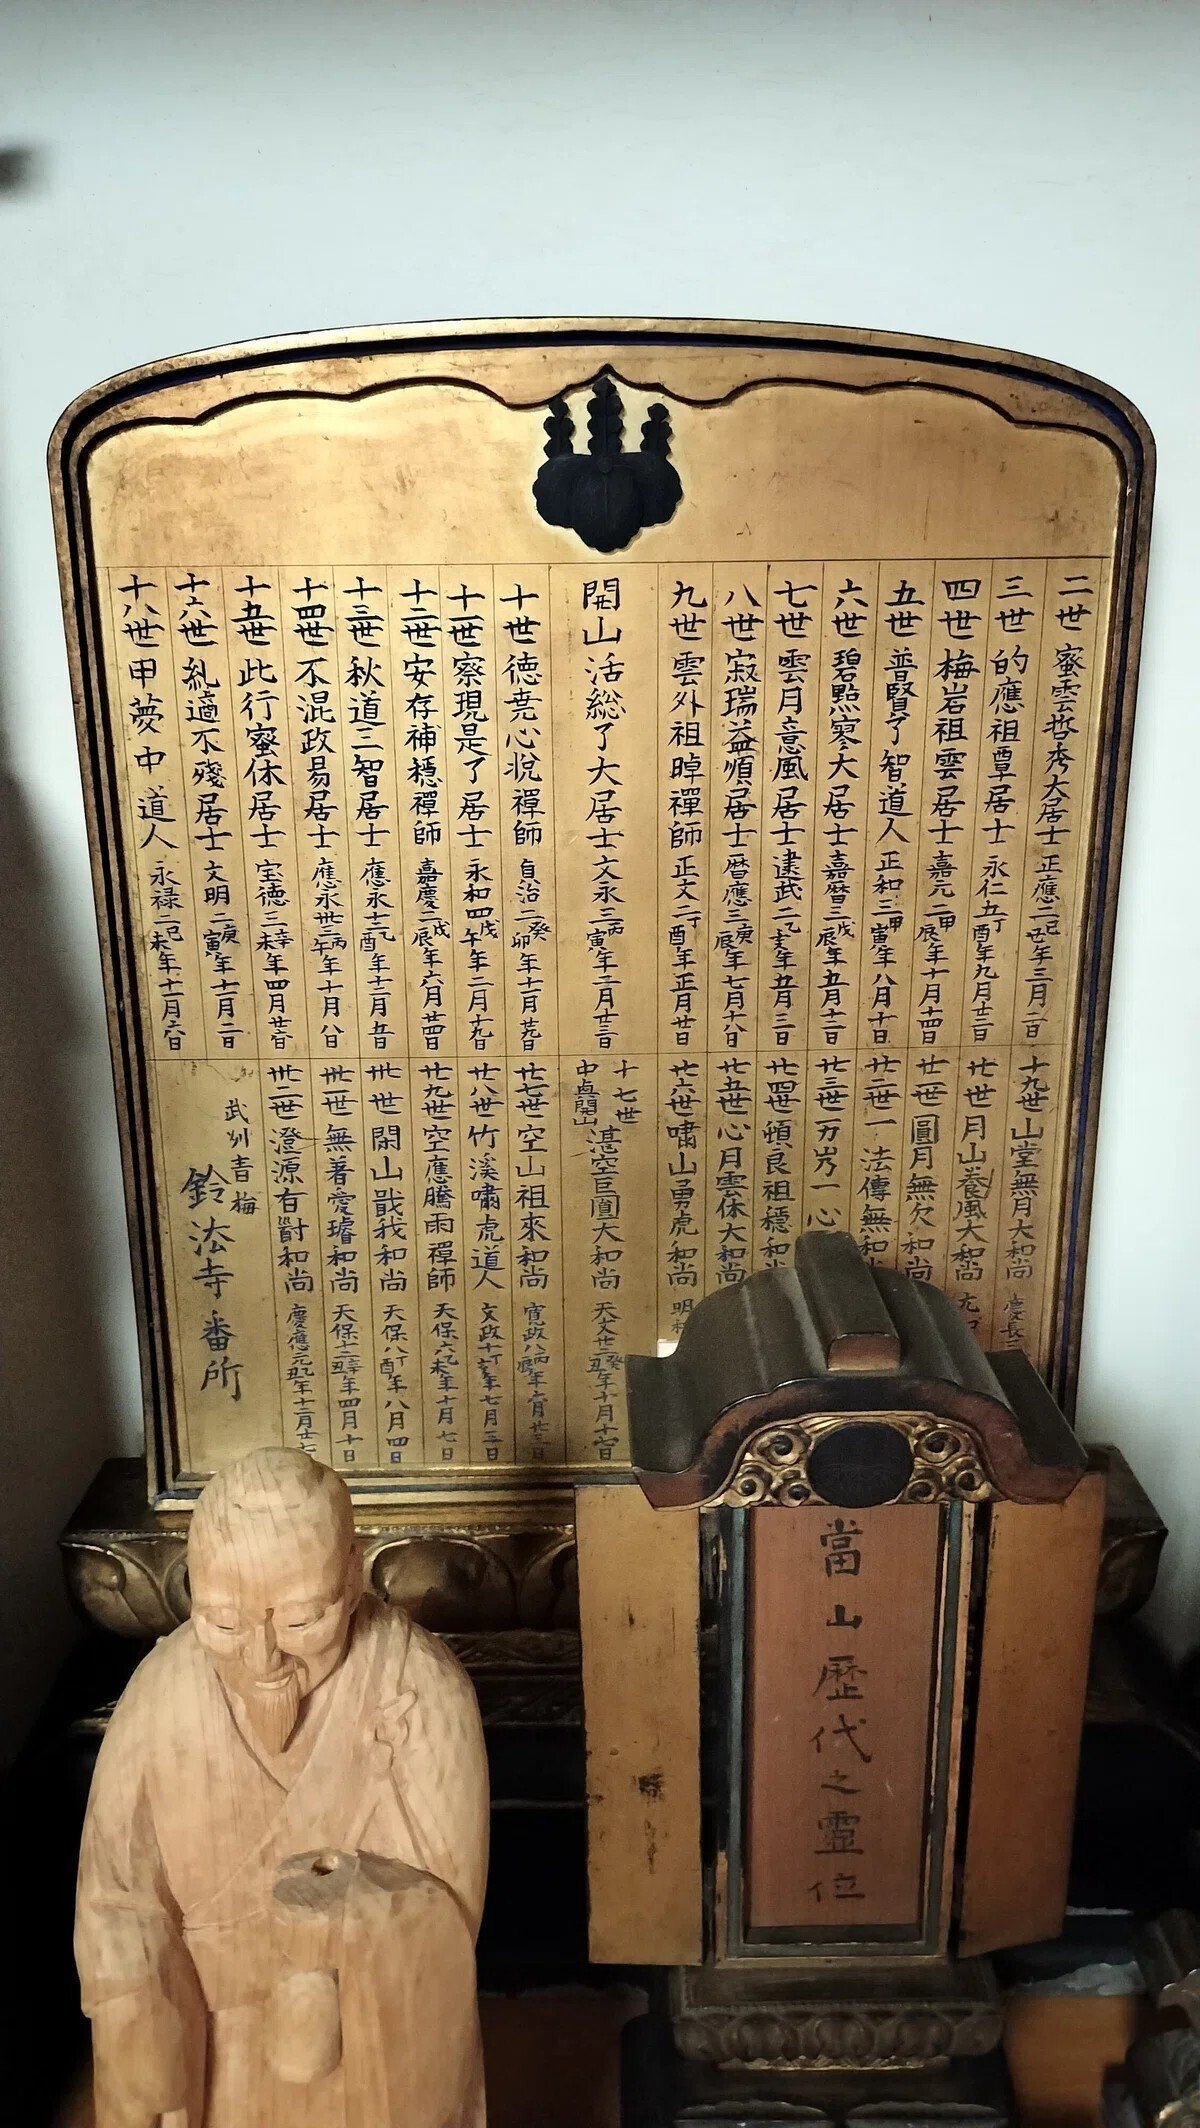 二世 蜜雲哲秀大居士 正應二己丑年三月二日
三世 的應祖覃居士 永仁五丁酉年九月廿二日
四世 梅岩祖雲居士 嘉元二甲辰年十月十四日
五世 普賢了智道人 正和三甲寅年八月十日
六世 碧點寥大居士 嘉暦三戊辰年五月十二日
七世 雲月意風居士 建武二乙亥年五月三日
八世 寂瑞益順居士 暦應三庚辰年七月十八日
九世 雲外祖晫禪師 正文二丁酉年正月廿日
開山 活総了大居士 文永三丙寅年二月廿三日
十世 德尭心悦禪師 自治二癸卯年十二月廿九日
十一世 察現是了居士 永和四戊午年二月十九日
十二世 安存補穩禪師 嘉慶二戊辰年六月廿四日
十三世 秋道三智居士 應永十二乙酉年十二月五日
十四世 不混政易居士 應永卅三丙午年十月八日
十五世 此行蜜休居士 宝徳三辛未年四月廿六日
十六世 糺適不殘居士 文明二庚寅年十二月二日
十八世 甲夢中道人 永禄二己未年十一月六日
十九世 山堂無月大和尚 慶長
廿世 月山養風大和尚
廿一世 圓月無欠和尚
廿二世 一法傳無和
廿三世 万岁一心
廿四世 頓良祖穩和尚
廿五世 心月雲休大和尚
廿六世 嘯山勇虎和尚 明
十七世 中興開山 湛空巨圓大和尚 天文廿二癸丑年十月十六日
廿七世 空山祖來和尚 寛政八丙辰年六月廿三日
廿八世 竹溪嘯虎道人 文政十丁亥年七月三日
廿九世 空應騰雨禪師 天保六乙未年十月七日
卅世 閑山戢我和尚 天保八丁酉年八月四日
卅一世 無著愛璿和尚 天保十二辛丑年四月十日
卅二世 澄源有對和尚 慶應元乙丑年十二月廿七
武州青梅
鈴法寺番所
當山歷代之靈位